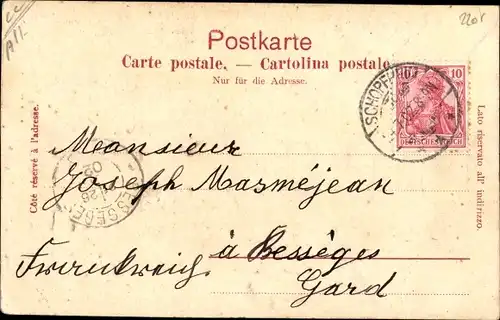 Postkarte
Carte postale. — Cartolina postale.
Nur für die Adresse.
Côté réservé à l'adresse.
Lato riservato all' indirizzo.
10 10
DEUTSCHES REICH
SCHOPFH
BESSEGES
02
Monsieur
Joseph Masméjean
à Bessèges
Frankreich
Gard
All.